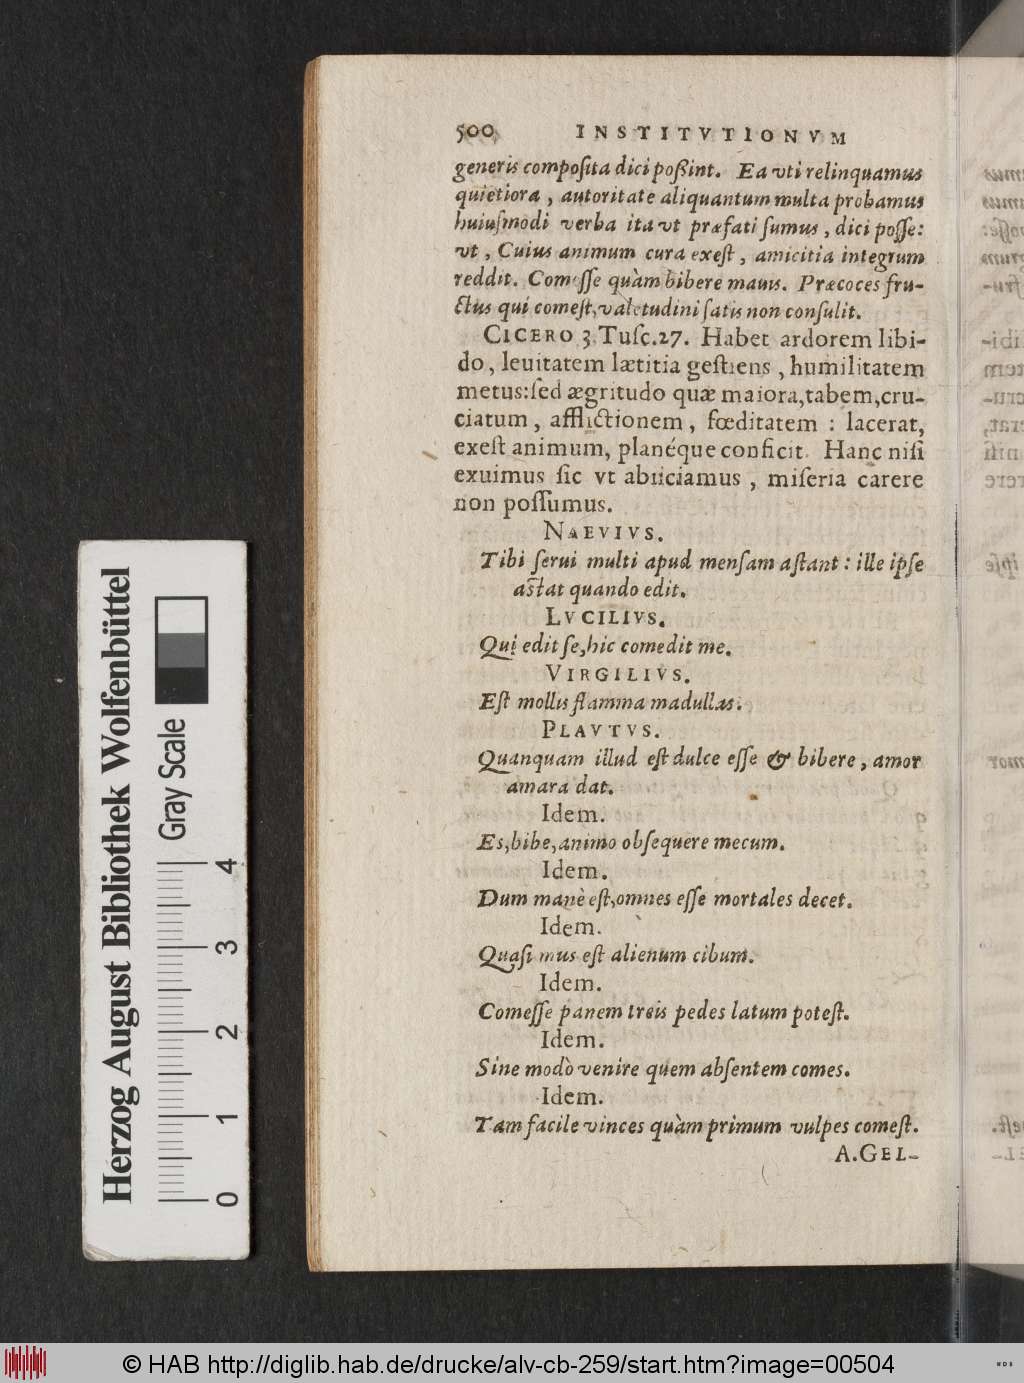 500 INSTITVTIONVM
generis compoſita dici poßint. Ea vti relinquamus
quietiora, autoritate aliquantum multa probamus
huiuſmodi verba ita vt præfati ſumus, dici poſſe:
vt, Cuius animum cura exeſt, amicitia integrum
reddit. Comeſſe quàm bibere mauis. Præcoces fru-
ctus qui comeſt, valetudini ſatis non conſulit.
CICERO 3 Tuſc.27. Habet ardorem libi-
do, leuitatem lætitia geſtiens, humilitatem
metus: ſed ægritudo quæ maiora, tabem, cru-
ciatum, afflictionem, fœditatem : lacerat,
exeſt animum, planéque conficit. Hanc niſi
exuimus ſic vt abiiciamus, miſeria carere
non poſſumus.
NAEVIVS.
Tibi ſerui multi apud menſam aſtant : ille ipſe
aſtat quando edit.
LVCILIVS.
Qui edit ſe, hic comedit me.
VIRGILIVS.
Eſt mollis flamma madullas.
PLAVTVS.
Quanquam illud eſt dulce eſſe & bibere, amor
amara dat.
Idem.
Es, bibe, animo obſequere mecum.
Idem.
Dum manè eſt, omnes eſſe mortales decet.
Idem.
Quaſi mus eſt alienum cibum.
Idem.
Comeſſe panem treis pedes latum poteſt.
Idem.
Sine modò venire quem abſentem comes.
Idem.
Tam facile vinces quàm primum vulpes comeſt.
A.GEL-
Herzog August Bibliothek Wolfenbüttel
Gray Scale
0 1 2 3 4
© HAB http://diglib.hab.de/drucke/alv-cb-259/start.htm?image=00504